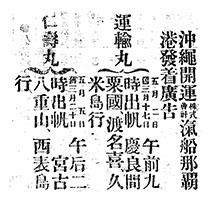 沖繩開運株式会計滊船那覇
港發着廣告
運輸丸
五月
三月十七日
午前九
時出帆 慶良間
粟國、渡名喜、久
米島行
仁壽丸
五月五日
三月二十日
午后二
時出帆 宮古
八重山、西表島
行